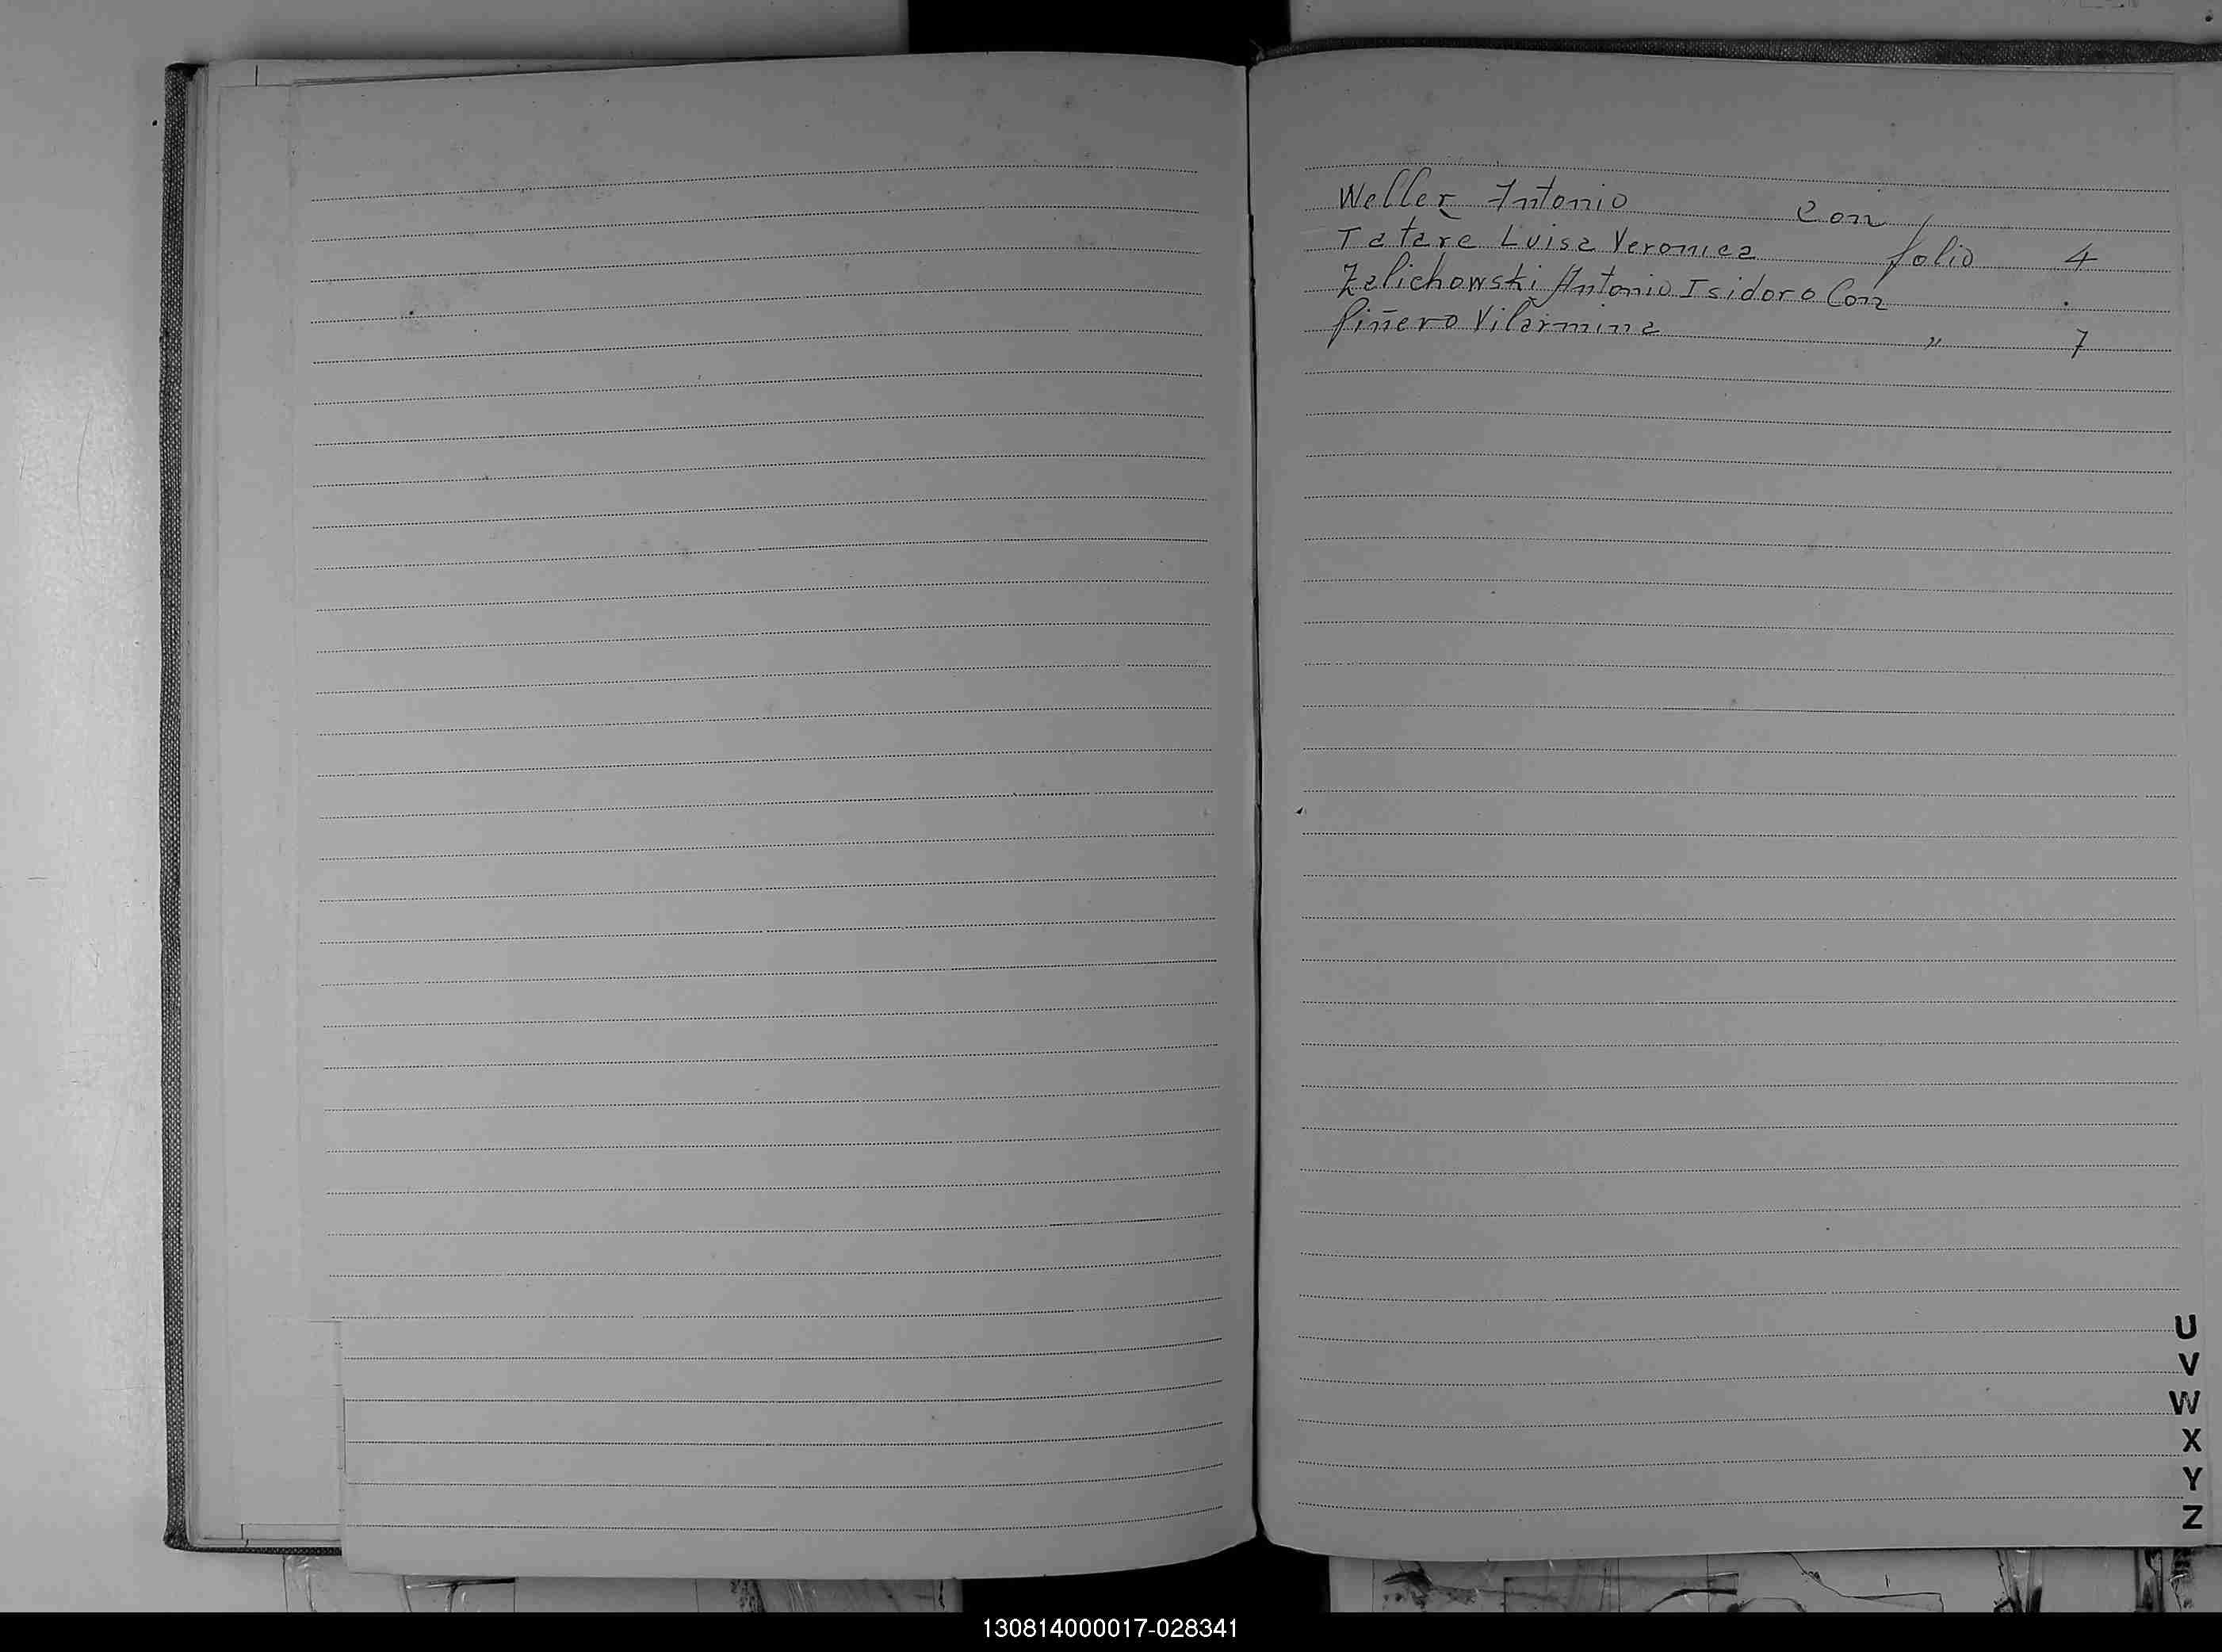 Weller Antonio Con
Tatare Luisa Veronica folio 4
Zelichowski Antonio Isidoro Con
Piñero Vilarmina " 7
U
V
W
X
Y
Z
130814000017-028341